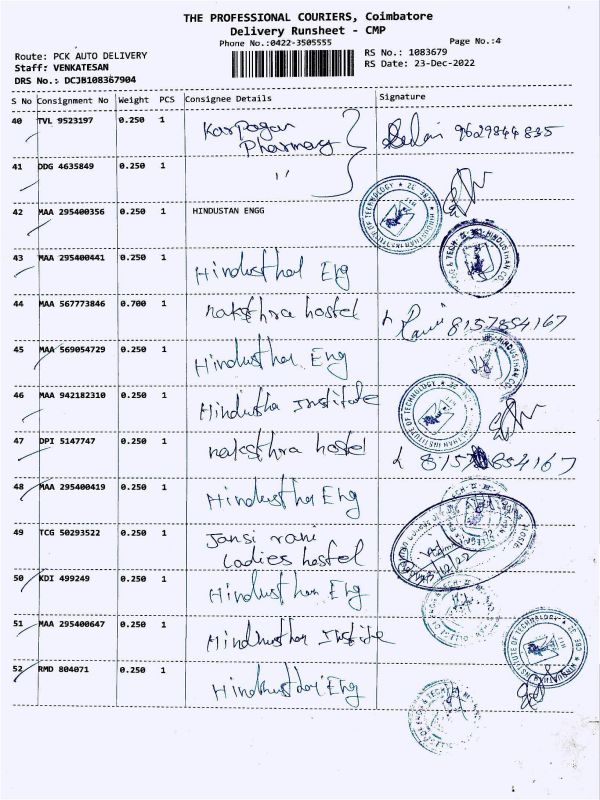 THE PROFESSIONAL COURIERS, Coimbatore
Delivery Runsheet - CMP
Phone No.:0422-3505555
Page No.:4
Route: PCK AUTO DELIVERY
Staff: VENKATESAN
DRS No.: DCJB108367904
RS No.: 1083679
RS Date: 23-Dec-2022
S No Consignment No Weight PCS Consignee Details Signature
40 TVL 9523197 0.250 1 Karpagan Pharmacy 9629844835
41 DDG 4635849 0.250 1 "
42 MAA 295400356 0.250 1 HINDUSTAN ENGG
43 MAA 295400441 0.250 1 Hindusthal Eng
44 MAA 567773846 0.700 1 nakshra hostel 8157854167
45 MAA 569054729 0.250 1 Hindusthan Eng
46 MAA 942182310 0.250 1 Hindustha Institute
47 DPI 5147747 0.250 1 naksthra hostel 8157 854167
48 MAA 295400419 0.250 1 Hindusthan Eng
49 TCG 50293522 0.250 1 Jansi rani
Ladies hostel
50 KDI 499249 0.250 1 Hindusthan Eng
51 MAA 295400647 0.250 1 Hindhusthan Institute
52 RMD 804071 0.250 1 Eng